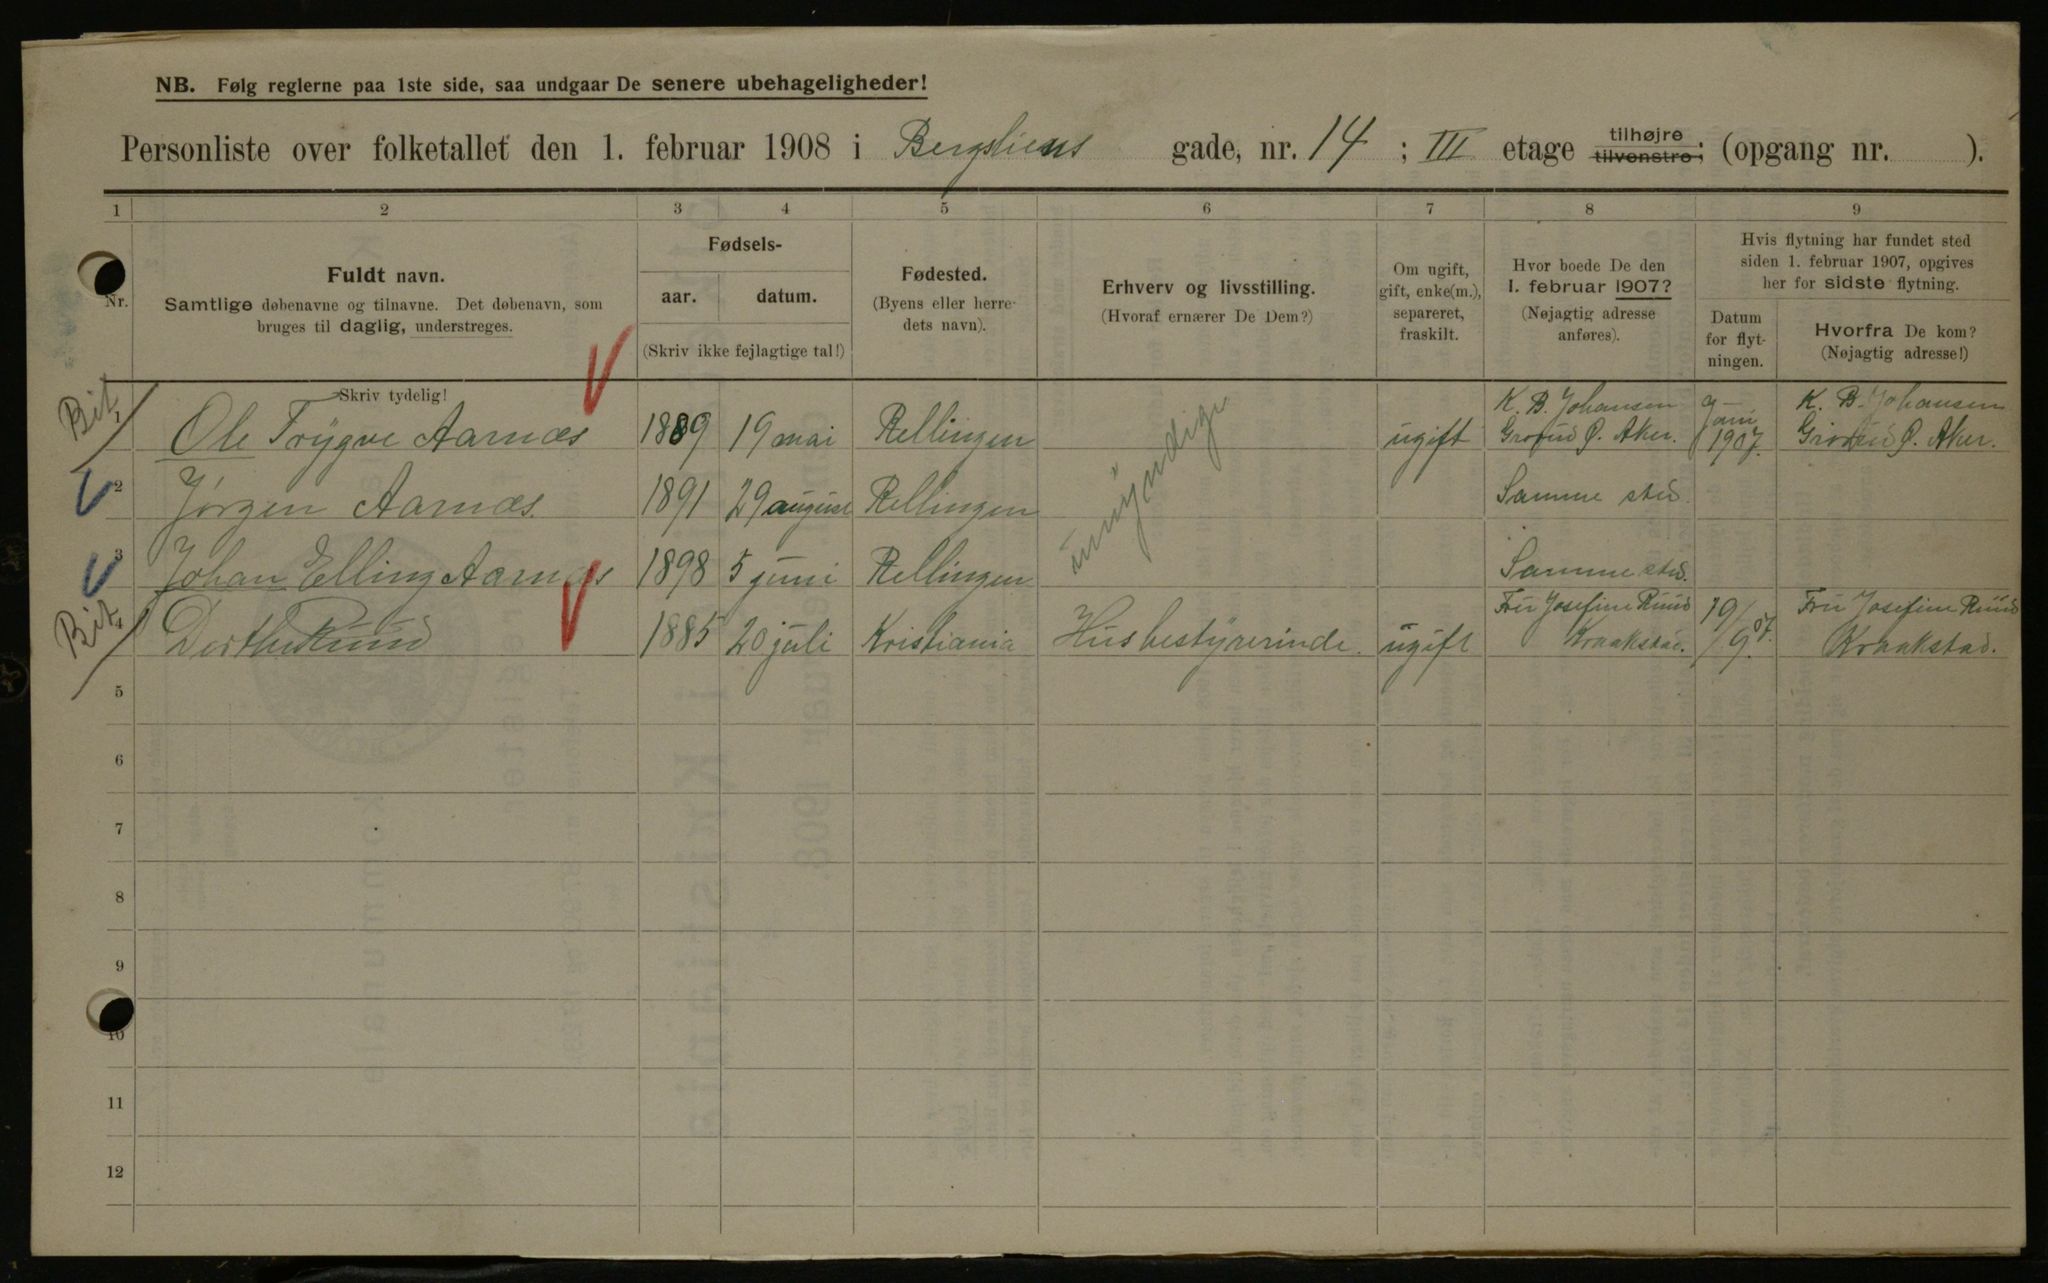 NB. Følg reglerne paa 1ste side, saa undgaar De senere ubehageligheder!
Personliste over folketallet den 1. februar 1908 i Bergsliens gade, nr. 14 ; III etage tilhøjre tilvenstre; (opgang nr. ).
1 2 3 4 5 6 7 8 9
Nr.
Fuldt navn.
Samtlige døbenavne og tilnavne. Det døbenavn, som
bruges til daglig, understreges.
Skriv tydelig!
Fødsels-
aar. datum.
(Skriv ikke fejlagtige tal!)
Fødested.
(Byens eller herre-
dets navn).
Erhverv og livsstilling.
(Hvoraf ernærer De Dem?)
Om ugift,
gift, enke(m.),
separeret,
fraskilt.
Hvor boede De den
1. februar 1907?
(Nøjagtig adresse
anføres).
Hvis flytning har fundet sted
siden 1. februar 1907, opgives
her for sidste flytning.
Datum
for flyt-
ningen.
Hvorfra De kom?
(Nøjagtig adresse!)
Bit
1 Ole Trygve Aarnæs 1889 19 mai Rellingen ugift K. B. Johansen Grorud Ø. Aker. 9 1907. K. B. Johansen Grorud Ø. Aker.
2 Jørgen Aarnæs. 1891 29 august Rellingen Samme sted.
umyndige
3 Johan Elling Aarnæs 1898 5 juni Rellingen Samme sted.
Bit
4 Dorthe Ruud 1885 20 juli Kristiania Husbestyrerinde. ugift Fru Josefine Ruud Kraakstad. 19/9 07. Fru Josefine Ruud Kraakstad.
5
6
7
8
9
10
11
12